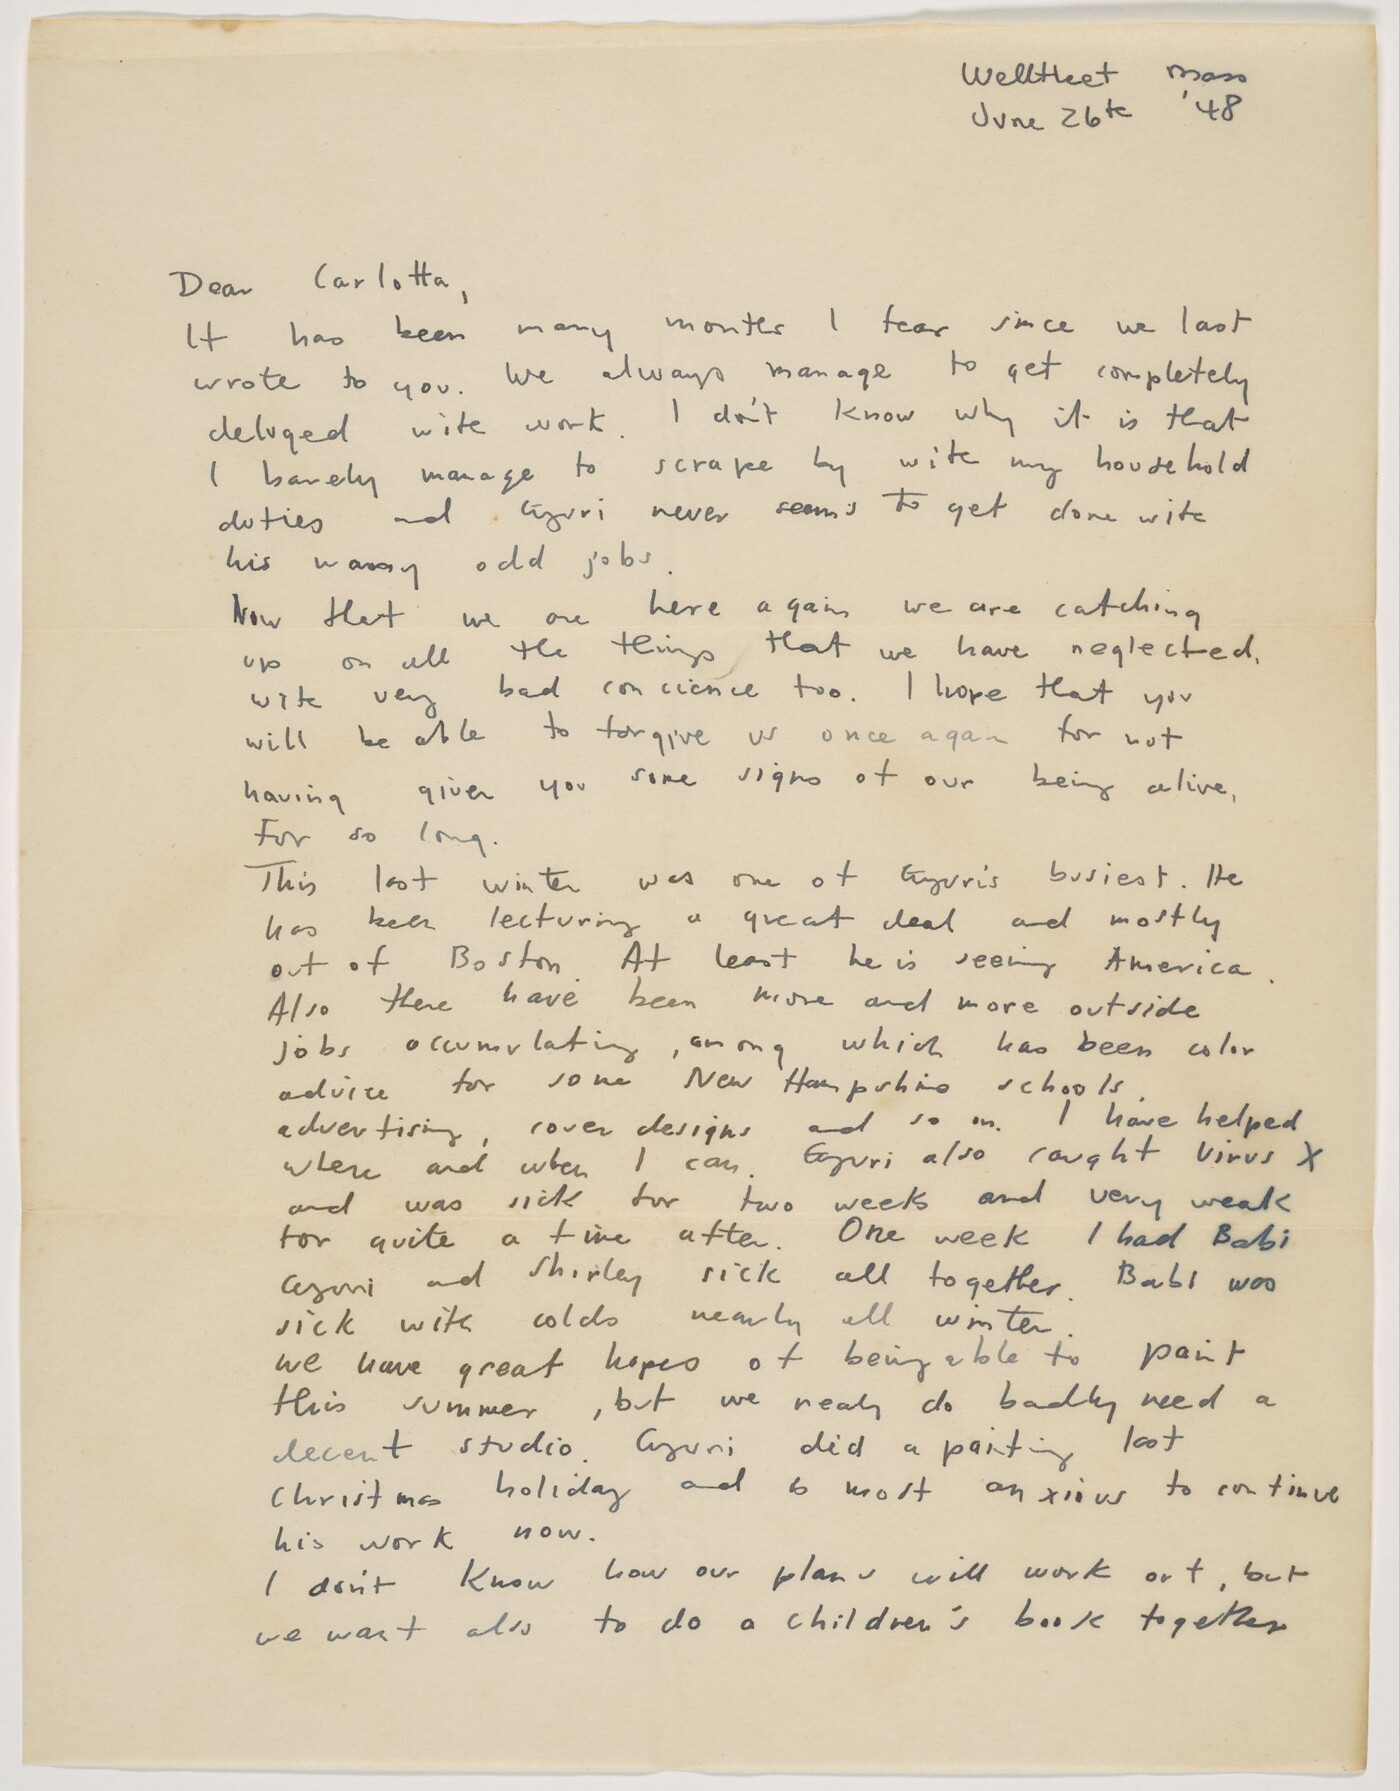 Wellfleet Mass
June 26th '48
Dear Carlotta,
It has been many months I fear since we last
wrote to you. We always manage to get completely
deluged with work. I don't know why it is that
I barely manage to scrape by with my household
duties and Gyuri never seems to get done with
his many odd jobs.
Now that we are here again we are catching
up on all the things that we have neglected,
with very bad concience too. I hope that you
will be able to forgive us once again for not
having given you some signs of our being alive,
for so long.
This last winter was one of Gyuris busiest. He
has been lecturing a great deal and mostly
out of Boston. At least he is seeing America.
Also there have been more and more outside
jobs accumulating, among which has been color
advice for some New Hampshire schools,
advertising, cover designs and so on. I have helped
where and when I can. Gyuri also caught Virus X
and was sick for two weeks and very weak
for quite a time after. One week I had Babi
Gyuri and Shirley sick all together. Babi was
sick with colds nearly all winter.
We have great hopes of being able to paint
this summer, but we realy do badly need a
decent studio. Gyuri did a painting last
Christmas holiday and is most anxious to continue
his work now.
I don't know how our plans will work out, but
we want also to do a children's book together